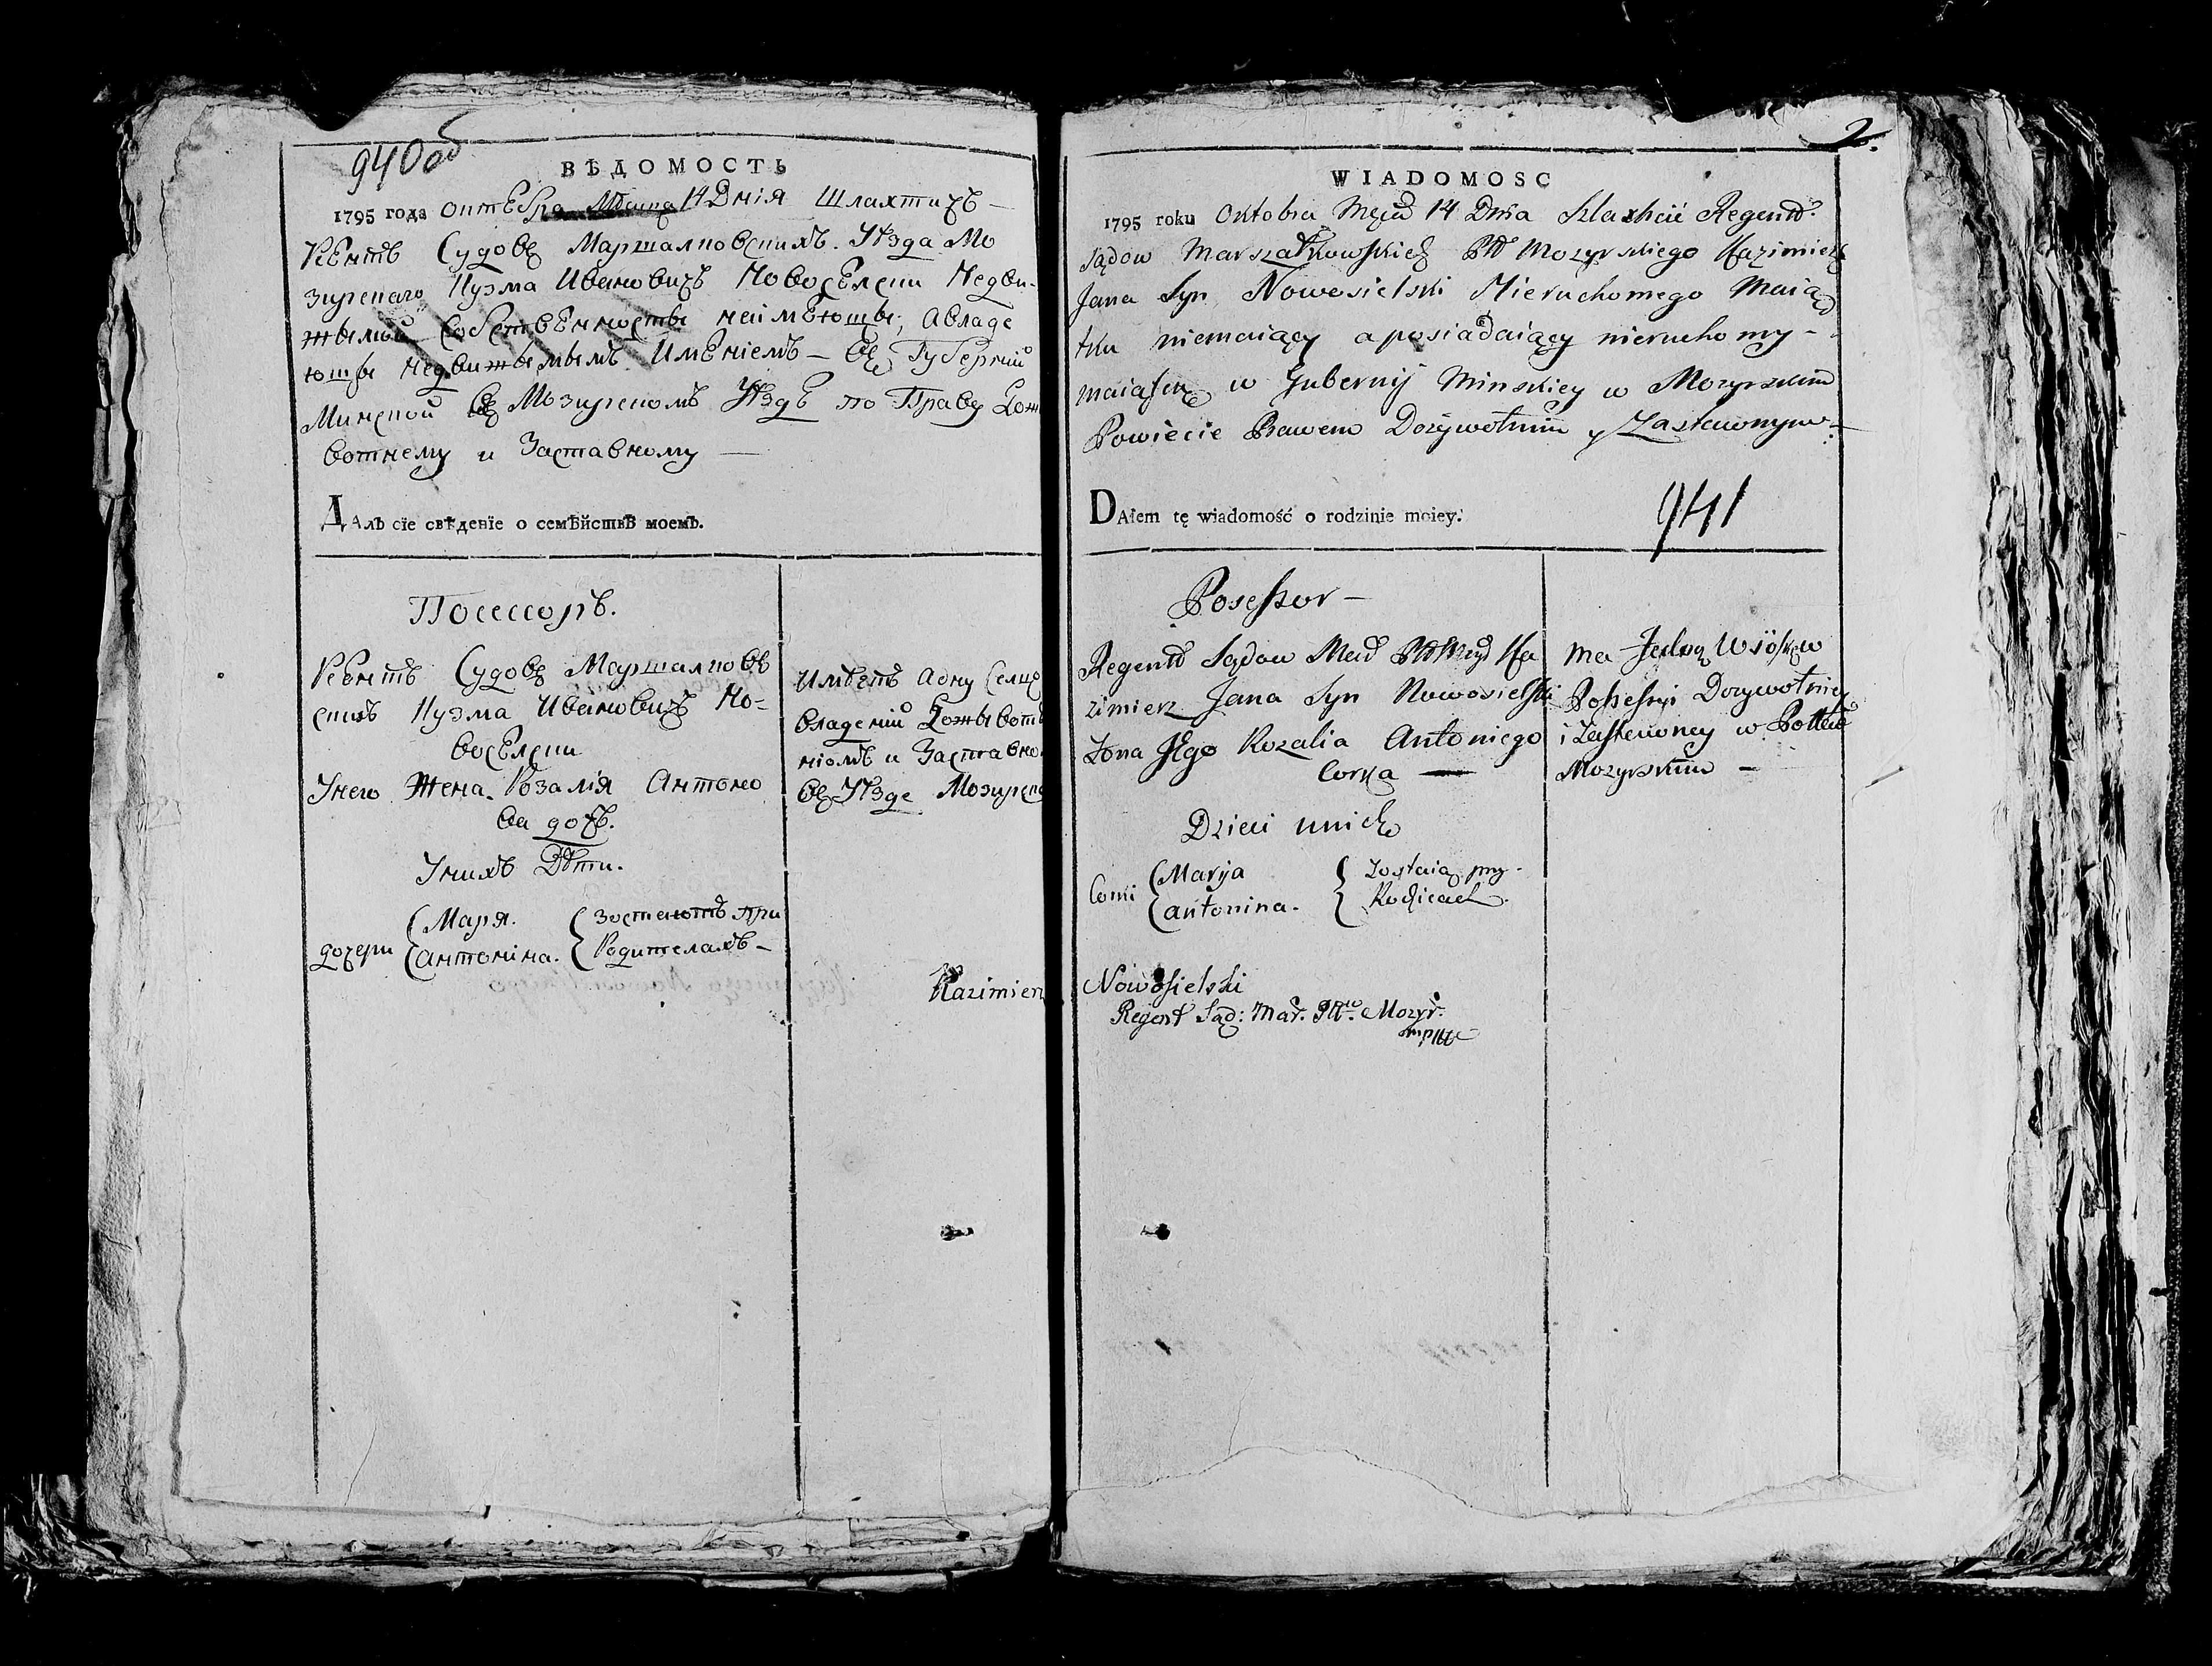 940об
ВѢДОМОСТЬ
1795 года октебра 14 Дніа Шлахтичъ
Реентъ Судовъ Маршалковскихъ. Уѣзда Мо
зирскаго Кузма Ивановичъ Новоселски Недви-
жымой собственности неимеющы, Авладе
ющы Недвижымымъ Именіемъ – въ Губерніи
Минской въ Мозирскомъ Уѣзде по Праву Дож
вотнему и Заставному —
Далъ сїе свѣденїе о семѣйствѣ моемъ.
Посессоръ.
Реентъ Судовъ Маршалковъ
скихъ Кузма Ивановичъ Но=
воселски
Унего Жена Розалія Антоно
ва дочъ.
Унихъ Дѣти.
дочери
Маря.
Антоніна.
Зостаютъ при
Родителахъ –
Имѣетъ Адну Селцо
владеніи Дожывот
ніомъ и Заставно
въ Уѣзде Мозирско
Kazimierz
2.
WIADOMOSC
1795 roku Oktobra Mręca 14 Dnia Szlachcic Regent
Sądow Marszałkowskich Ptt Mozyrskiego Kazimierz
Jana Syn Nowosielski Nieruchomego Maią
tku niemaiący a posiadaiący nieruchomy -
maiątek w Gubernij Minskiey w Mozyrskim
Powiecie Prawem Dożywotnim y Zastawnym –
DAłem tę wiadomość o rodzinie moiey.
941
Possessor –
Regent Sądow Mar Ptt Mozyr Ka
zimierz Jana Syn Nowosielski
Zona Jego Rozalia Antoniego
Corka —
Dzieci unich
Corki
Marija
Antonina.
Zostaią przy
Rodzicach
Ma Jedną Wioskę w
Possessyi Dozywotniey
i Zastawney w Powiecie
Mozyrskim –
Nowosielski
Regent Sąd: Mar. Ptt. Mozyr.
mp